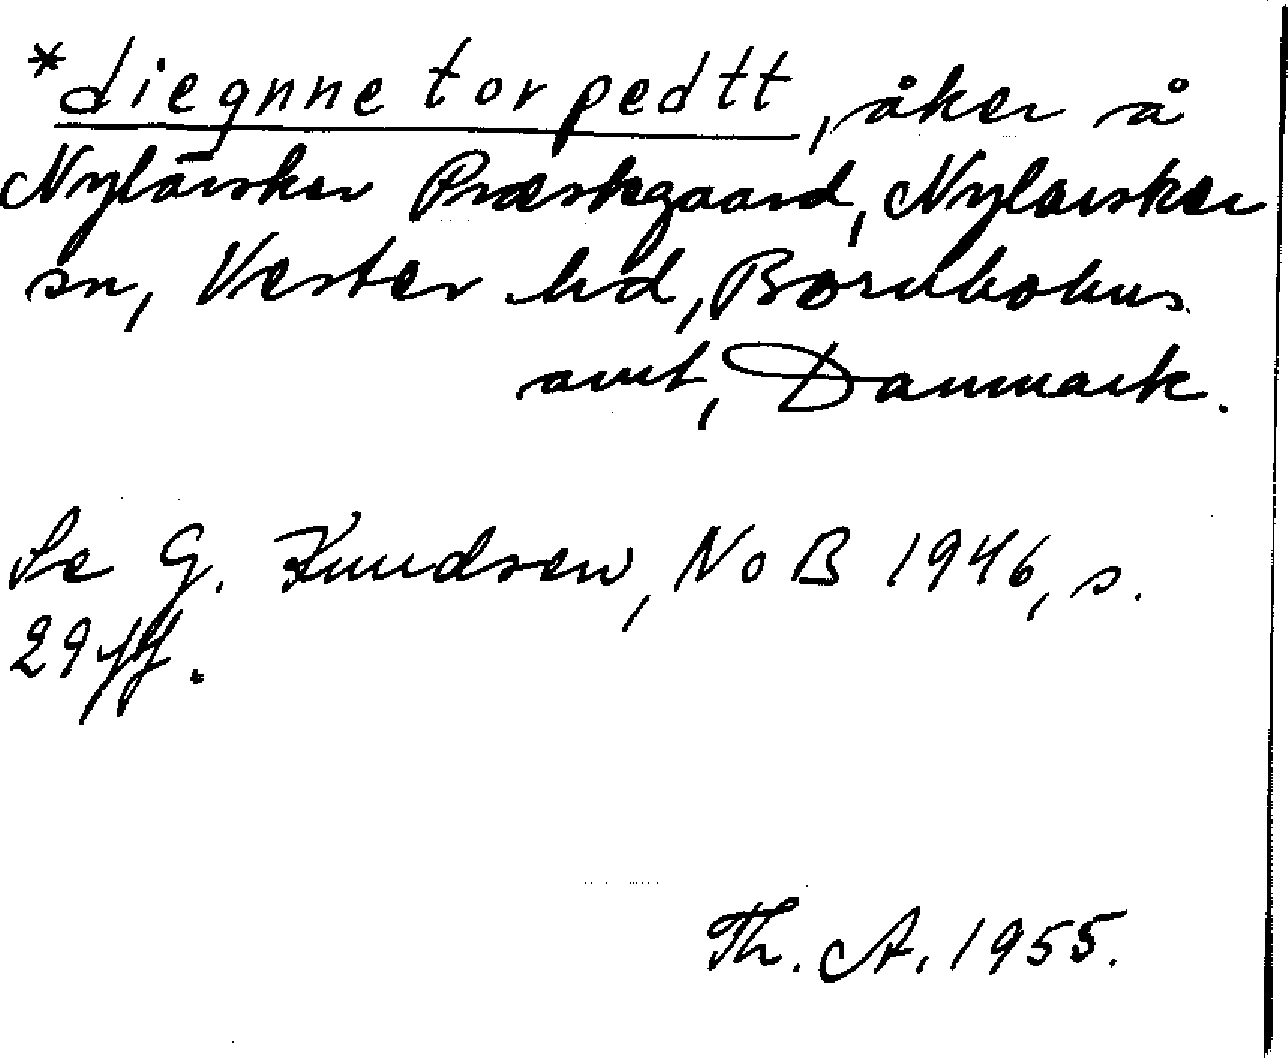 *diegnne torpedtt, åker å
Nylarsker Præstegaard, Nylarsker
sn, Vester hd, Bornholms
amt, Danmark.
Se G. Knudsen, NoB 1946, s.
29 ff.
Th. A. 1955.